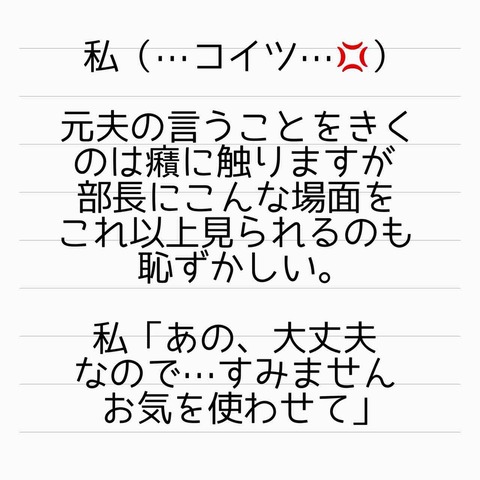 私（…コイツ…💢）
元夫の言うことをきく
のは癪に触りますが
部長にこんな場面を
これ以上見られるのも
恥ずかしい。
私「あの、大丈夫
なので…すみません
お気を使わせて」